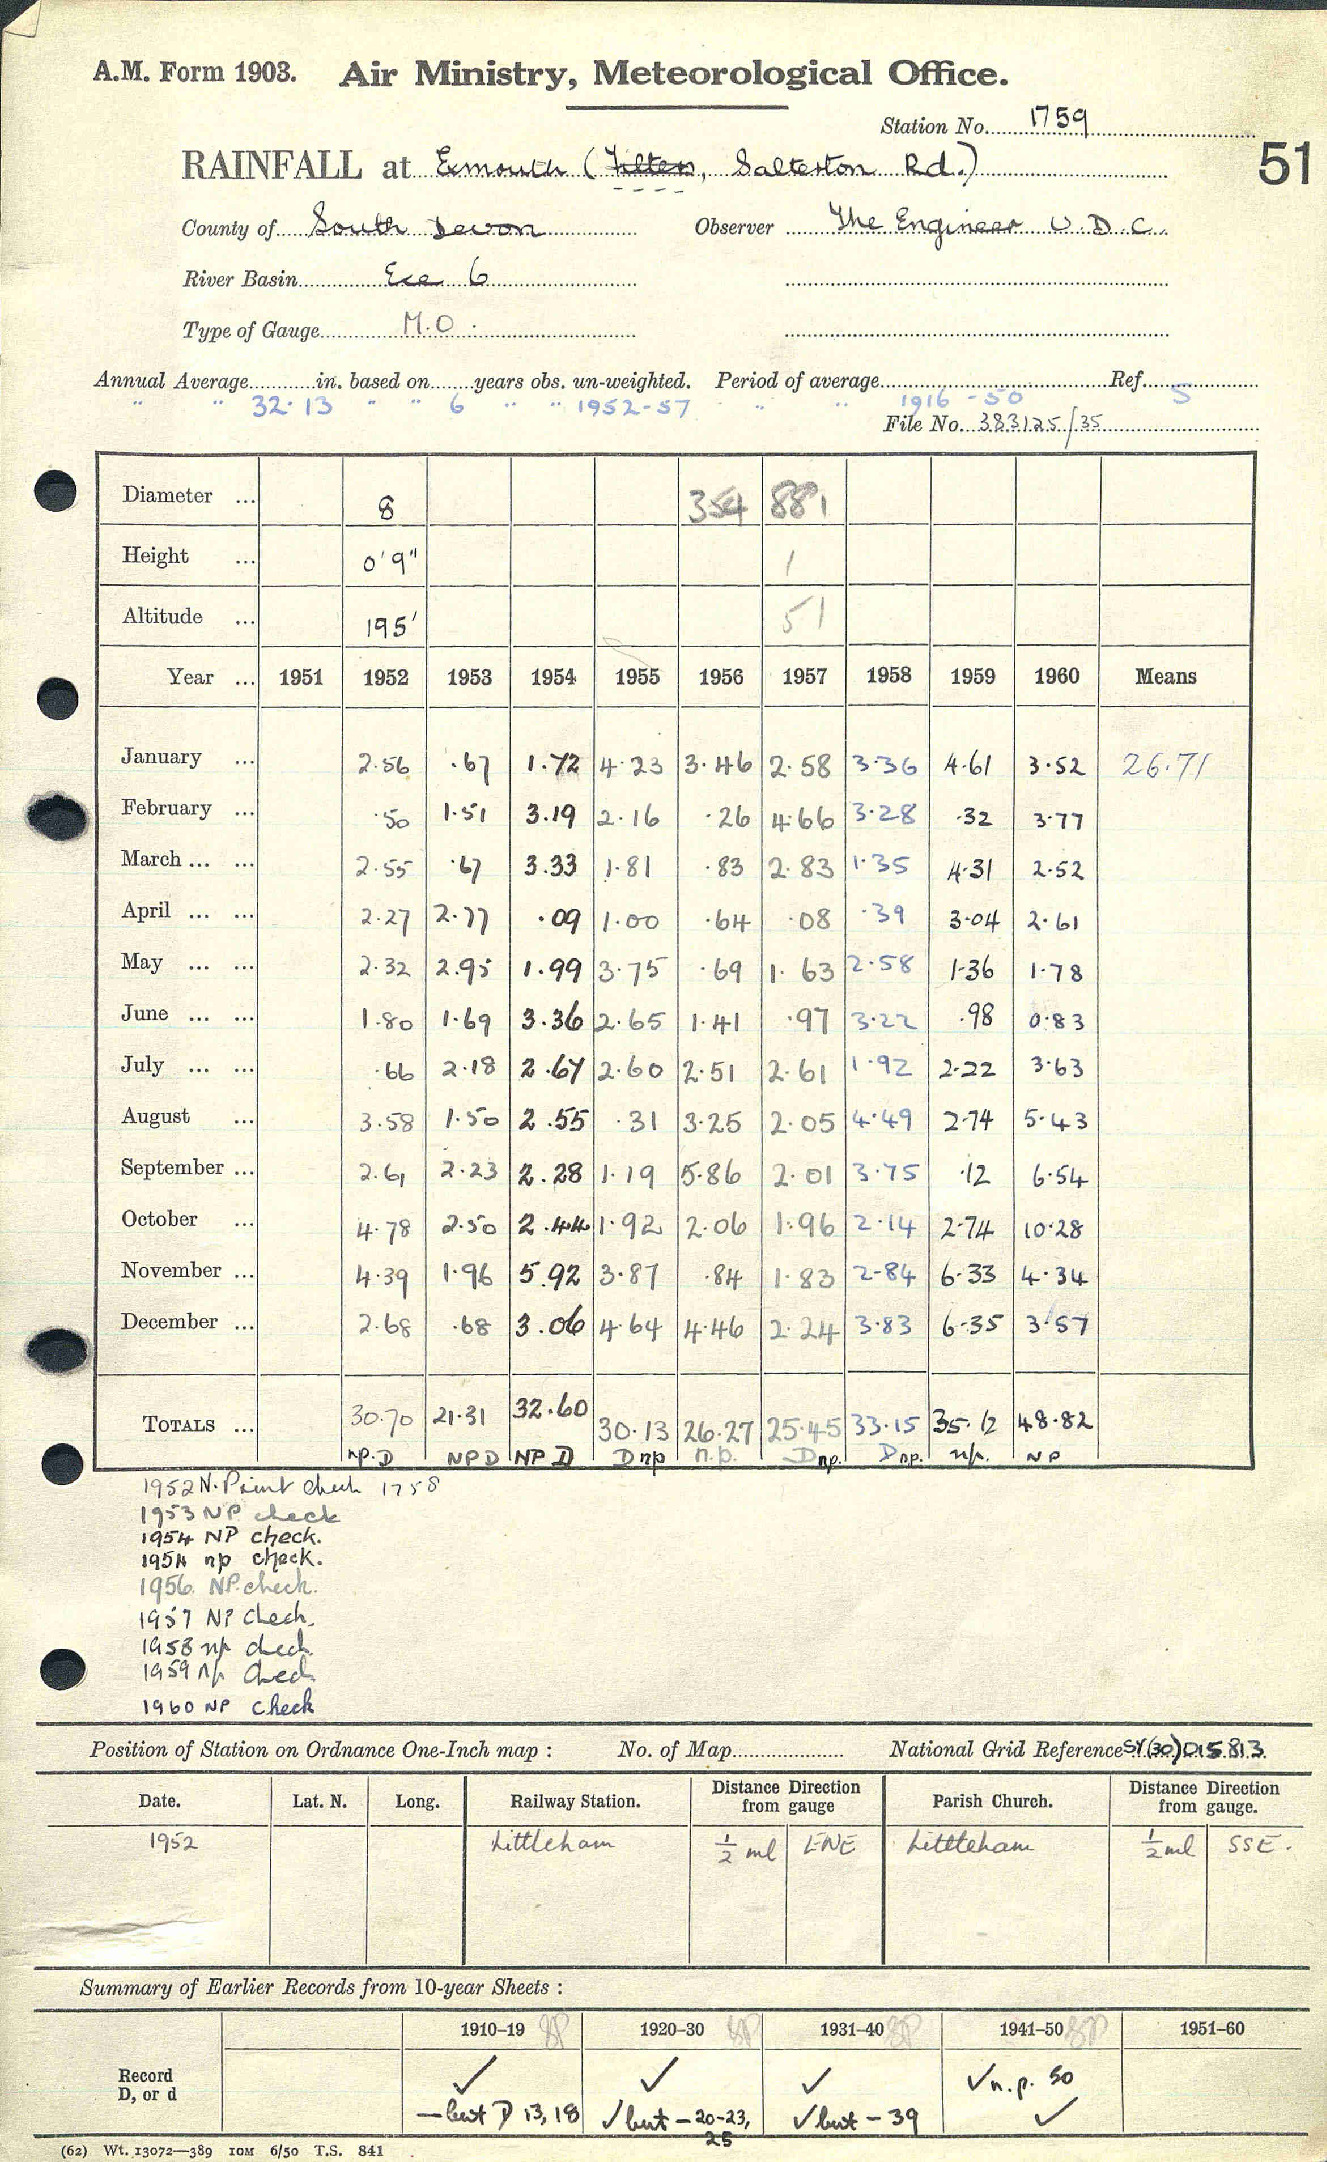 A.M. Form 1903. Air Ministry, Meteorological Office.
Station No. 1759
51
RAINFALL at Exmouth (Filters, Salterton Rd.)
County of South Devon Observer The Engineer U.D.C.
River Basin Exe 6
Type of Gauge M.O.
Annual Average in. based on years obs. un-weighted. Period of average Ref.
" " 32.13 " " 6 " " 1952-57 " " 1916-50 5
File No. 383125/35
Diameter ... 8 354 881
Height ... 0'9" 1
Altitude ... 195' 51
Year ... 1951 1952 1953 1954 1955 1956 1957 1958 1959 1960 Means
January ... 2.56 .67 1.72 4.23 3.46 2.58 3.36 4.61 3.52 26.71
February ... .50 1.51 3.19 2.16 .26 4.66 3.28 .32 3.77
March ... ... 2.55 .67 3.33 1.81 .83 2.83 1.35 4.31 2.52
April ... ... 2.27 2.77 .09 1.00 .64 .08 .39 3.04 2.61
May ... ... 2.32 2.95 1.99 3.75 .69 1.63 2.58 1.36 1.78
June ... ... 1.80 1.69 3.36 2.65 1.41 .97 3.22 .98 0.83
July ... ... .66 2.18 2.67 2.60 2.51 2.61 1.92 2.22 3.63
August ... 3.58 1.50 2.55 .31 3.25 2.05 4.49 2.74 5.43
September ... 2.61 2.23 2.28 1.19 5.86 2.01 3.75 .12 6.54
October ... 4.78 2.50 2.44 1.92 2.06 1.96 2.14 2.74 10.28
November ... 4.39 1.96 5.92 3.87 .84 1.83 2.84 6.33 4.34
December ... 2.68 .68 3.06 4.64 4.46 2.24 3.83 6.35 3.57
TOTALS ... 30.70 21.31 32.60 30.13 26.27 25.45 33.15 35.12 48.82
np.D NPD NP D D np n.p. D np. D np. np. NP
1952 N.Print check 1758
1953 NP check
1954 NP check.
1954 np check.
1956 NP check.
1957 NP check.
1958 np check
1959 np check
1960 NP check
Position of Station on Ordnance One-Inch map : No. of Map National Grid Reference SY(30)015.813.
Date. Lat. N. Long. Railway Station. Distance from gauge Direction Parish Church. Distance from gauge. Direction
1952 Littleham ½ ml ENE Littleham ½ ml SSE.
Summary of Earlier Records from 10-year Sheets :
1910–19 1920–30 1931–40 1941–50 1951–60
Record D, or d ✓ ✓ ✓ ✓ n.p. 50
— but D 13, 18 ✓ but – 20-23, 25 ✓ but – 39 ✓
(62) Wt. 13072—389 10M 6/50 T.S. 841